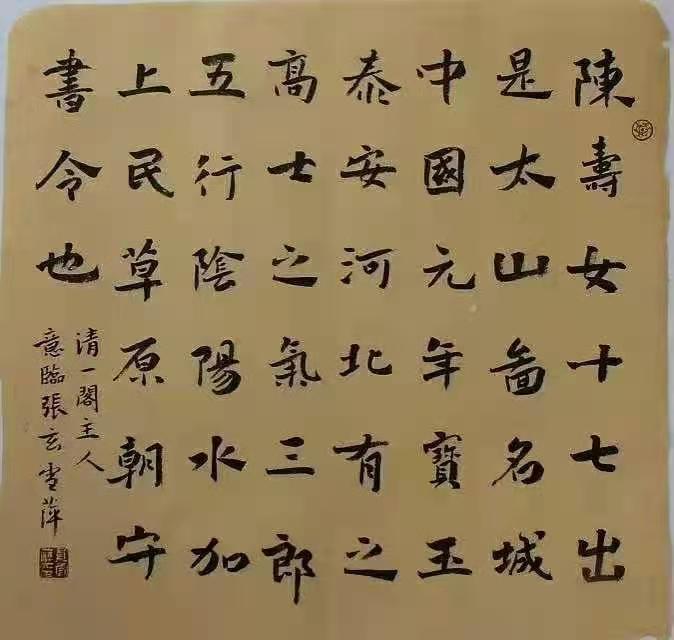 陳壽女十七出
是太山啚名城
中國元年寶玉
泰安河北有之
髙士之氣三郎
五行陰陽水加
上民草原朝守
書令也
清一閣主人
意臨張玄萍